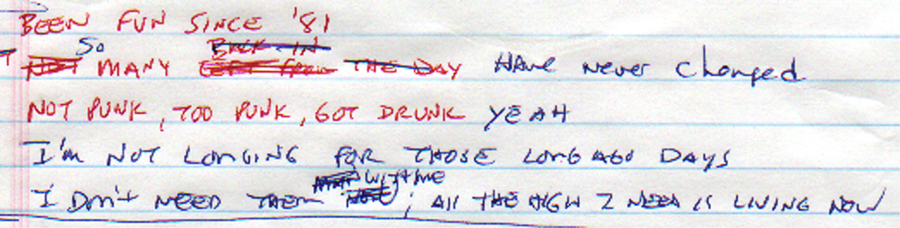 BEEN FUN SINCE '81
So MANY THE DAY HAVE never changed
NOT PUNK, TOO PUNK, GOT DRUNK YEAH
I'm NOT LONGING FOR THOSE LONG AGO DAYS
I Don't NEED THEM WITH ME; All THE HIGH I NEED IS LIVING NOW